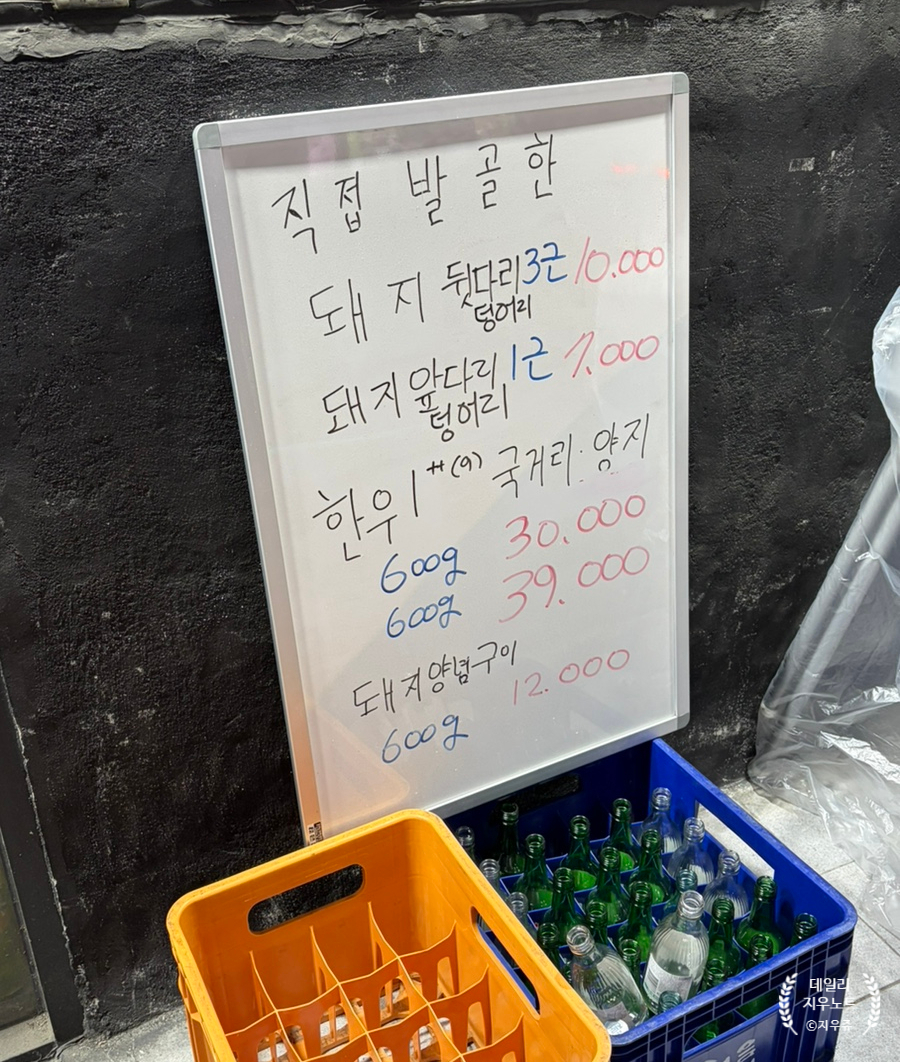 직접 발골한
돼지 뒷다리 3근 10.000
덩어리
돼지 앞다리 1근 7.000
덩어리
한우 1++(9) 국거리·양지
600g 30.000
600g 39.000
돼지양념구이
600g 12.000
데일리
지우노트